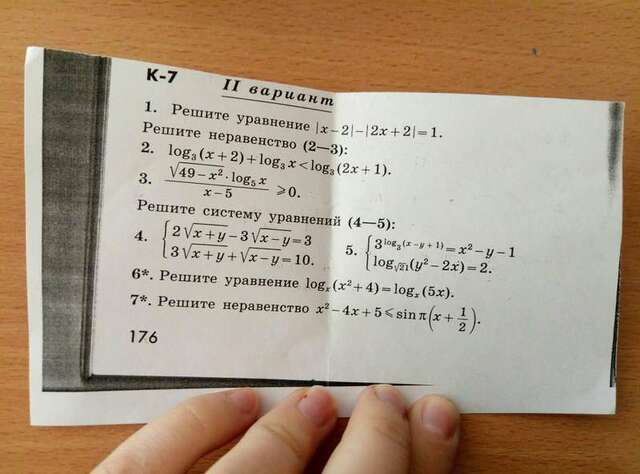 К-7
II вариант
1. Решите уравнение |x−2|−|2x+2|=1.
Решите неравенство (2—3):
2. log₃(x+2)+log₃x<log₃(2x+1).
3. √(49−x²)·log₅x / (x−5) ⩾0.
Решите систему уравнений (4—5):
4. {2√(x+y)−3√(x−y)=3
3√(x+y)+√(x−y)=10.
5. {3^(log₃(x−y+1))=x²−y−1
log_√21(y²−2x)=2.
6*. Решите уравнение logₓ(x²+4)=logₓ(5x).
7*. Решите неравенство x²−4x+5⩽sin π(x+1/2).
176